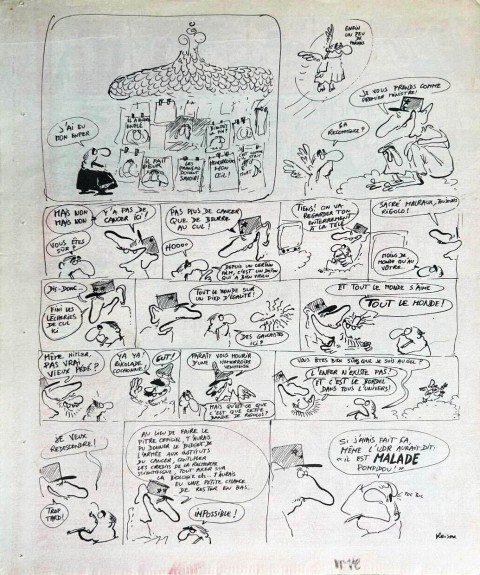 J'AI EU
MON ENFER
ENFIN
UN PEU DE
JE VOUS PRENDS COMME
PREMIER MINISTRE!
ÇA
RECOMMENCE?
MAIS NON
MAIS NON
Y'A PAS DE
CANCER ICI!
VOUS ÊTES
SÛR?
PAS PLUS DE CANCER
QUE DE BEURRE
AU CUL!
HOOOO
DEPUIS UN CERTAIN
FILM, C'EST UN DICTON
QUI A BIEN VIEILLI
TIENS! ON VA
REGARDER TON
ENTERREMENT
À LA TÉLÉ
SACRÉ MALRAUX, TOUJOURS
RIGOLO!
MOINS DE
MONDE QU'AU
VÔTRE
DIS-DONC
FINI LES
LÈCHERIES
DE CUL
ICI
TOUT LE MONDE SUR
UN PIED D'ÉGALITÉ!
DES GAUCHISTES
ICI?
ET TOUT LE MONDE S'AIME
TOUT LE MONDE!
MÊME HITLER.
PAS VRAI,
VIEUX PÉDÉ?
YA YA
RIGOLADE
COCHONNE
GUT!
PARAÎT VOUS MOURIR
D'UNE HÉMORROÏDE
VENIMEUSE
MAIS QU'EST-CE QUE
C'EST QUE CETTE
BANDE DE RIGOLOS?
VOUS ÊTES BIEN SÛRS QUE JE SOIS AU CIEL?
L'ENFER N'EXISTE PAS?
ET C'EST LE BORDEL
DANS TOUS L'UNIVERS!
JE VEUX
REDESCENDRE!
TROP
TARD!
AU LIEU DE FAIRE LE
PITRE OFFICIEL, T'AURAIS
DU DONNER LE BUDGET DE
L'ARMÉE AUX INSTITUTS
DU CANCER, CENTUPLER
LES CRÉDITS DE LA RECHERCHE
SCIENTIFIQUE, TOUT AXER SUR
LA BIOLOGIE ETC. T'AURAIS
EU UNE PETITE CHANCE
DE RESTER EN BAS.
IMPOSSIBLE!
SI J'AVAIS FAIT ÇA,
MÊME L'UDR AURAIT DIT
"IL EST MALADE
POMPIDOU!"
TOC TOC
REISER